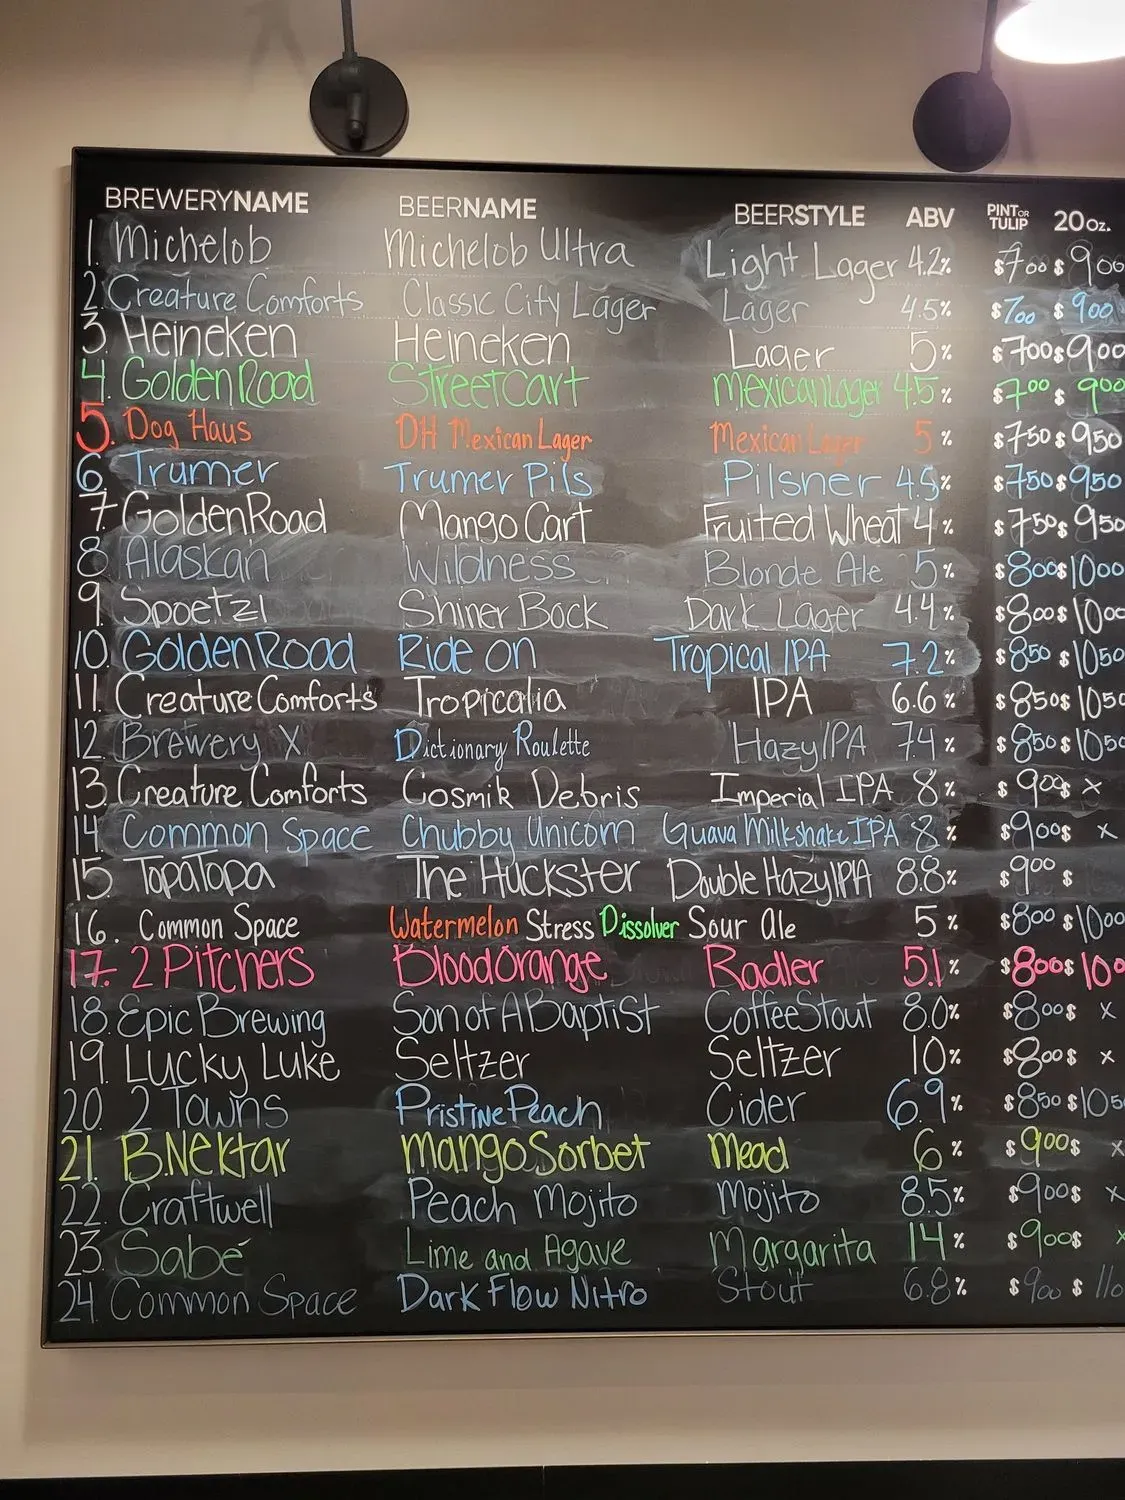 BREWERYNAME BEERNAME BEERSTYLE ABV PINT OR TULIP 20 Oz.
1. Michelob Michelob Ultra Light Lager 4.2% $7.00 $9.00
2. Creature Comforts Classic City Lager Lager 4.5% $7.00 $9.00
3. Heineken Heineken Lager 5% $7.00 $9.00
4. Golden Road Street Cart Mexican Lager 4.5% $7.00 $9.00
5. Dog Haus DH Mexican Lager Mexican Lager 5% $7.50 $9.50
6. Trumer Trumer Pils Pilsner 4.5% $7.50 $9.50
7. Golden Road Mango Cart Fruited Wheat 4% $7.50 $9.50
8. Alaskan Wildness Blonde Ale 5% $8.00 $10.00
9. Spoetzl Shiner Bock Dark Lager 4.4% $8.00 $10.00
10. Golden Road Ride on Tropical IPA 7.2% $8.50 $10.50
11. Creature Comforts Tropicalia IPA 6.6% $8.50 $10.50
12. Brewery X Dictionary Roulette Hazy IPA 7.4% $8.50 $10.50
13. Creature Comforts Cosmik Debris Imperial IPA 8% $9.00 $ x
14. Common Space Chubby Unicorn Guava Milkshake IPA 8% $9.00 $ x
15. TopaTopa The Huckster Double Hazy IPA 8.8% $9.00 $
16. Common Space Watermelon Stress Dissolver Sour Ale 5% $8.00 $10.00
17. 2 Pitchers Blood Orange Radler 5.1% $8.00 $10.0
18. Epic Brewing Son of A Baptist Coffee Stout 8.0% $8.00 $ x
19. Lucky Luke Seltzer Seltzer 10% $8.00 $ x
20. 2 Towns Pristine Peach Cider 6.9% $8.50 $10.5
21. B.Nektar Mango Sorbet Mead 6% $9.00 $ x
22. Craftwell Peach Mojito Mojito 8.5% $9.00 $ x
23. Sabé Lime and Agave Margarita 14% $9.00 $ x
24. Common Space Dark Flow Nitro Stout 6.8% $9.00 $11.0